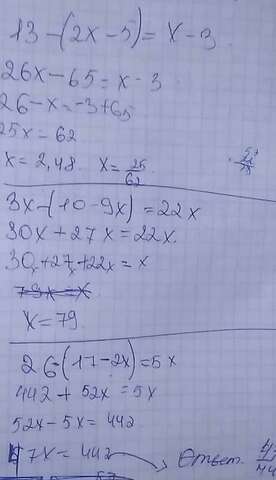 13-(2x-5)=x-3
26x-65=x-3
26-x=-3+65
25x=62
x=2,48. x=25/62
3x-(10-9x)=22x
30x+27x=22x.
30x+27x+22x=x
79x=x
x=79
26-(17-2x)=5x
442+52x=5x
52x-5x=442
47x=442
Ответ.